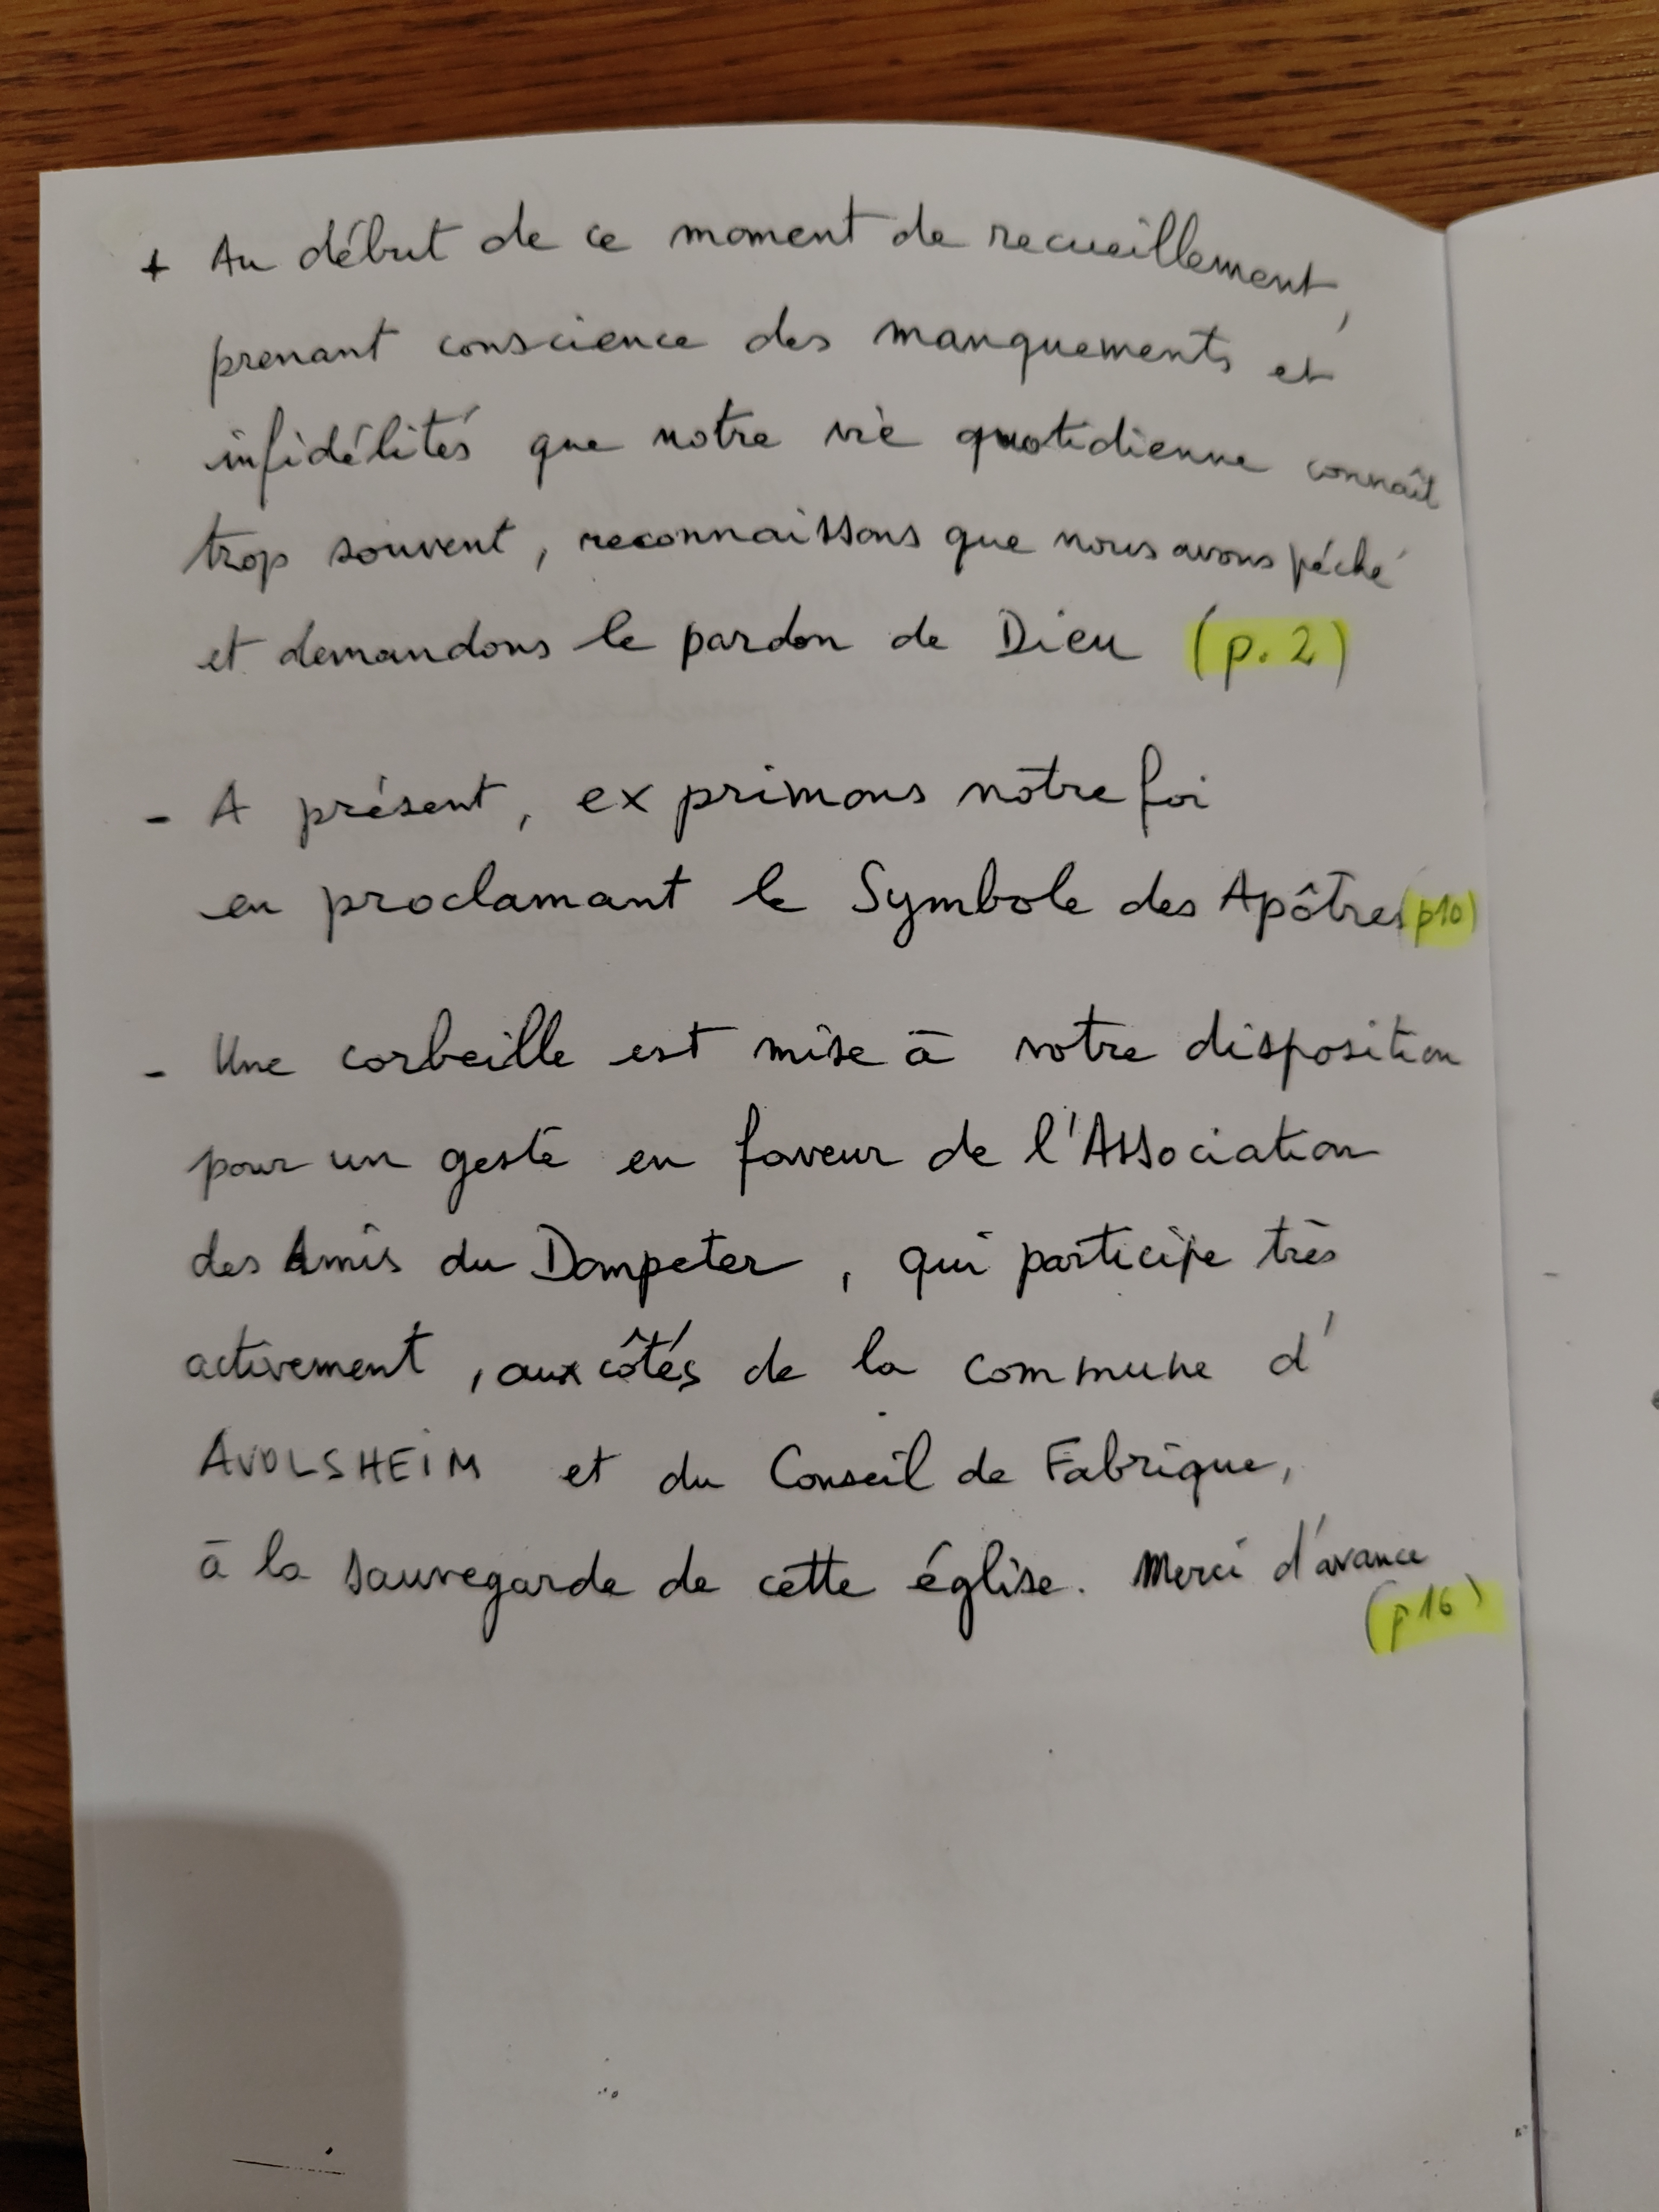 + Au début de ce moment de recueillement,
prenant conscience des manquements et
infidélités que notre vie quotidienne connaît
trop souvent, reconnaissons que nous avons péché
et demandons le pardon de Dieu (p. 2)
- A présent, exprimons notre foi
en proclamant le Symbole des Apôtres (p10)
- Une corbeille est mise à votre disposition
pour un geste en faveur de l'Association
des Amis du Dompeter, qui participe très
activement, aux côtés de la commune d'
AVOLSHEIM et du Conseil de Fabrique,
à la sauvegarde de cette église. Merci d'avance
(p16)